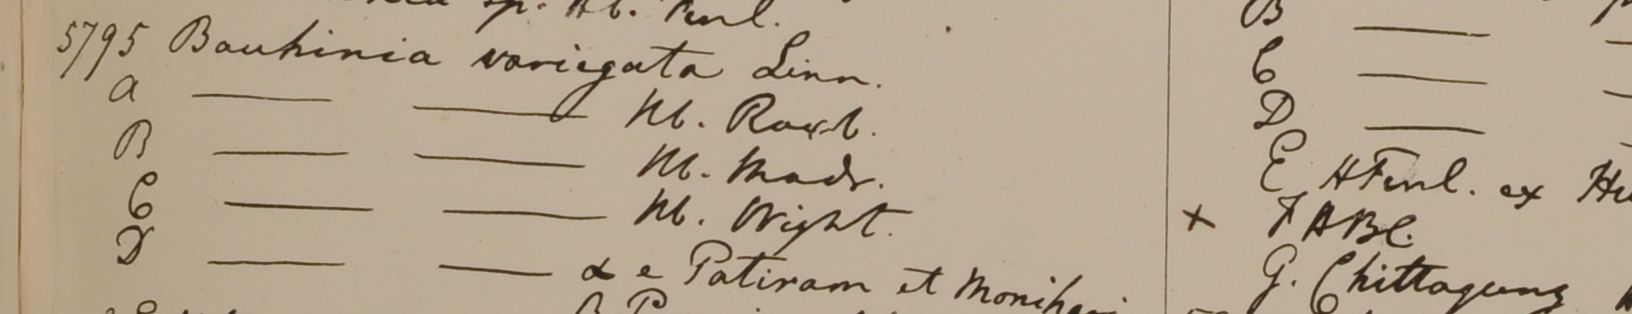 sp. Hb. Finl.
5795 Bauhinia variegata Linn.
A — — Hb. Roxb.
B — — Hb. Madr.
C — — Hb. Wight.
D — — α e Patiram et
B —
C —
D —
E HFinl. ex
+ F HBC.
G. Chittagong